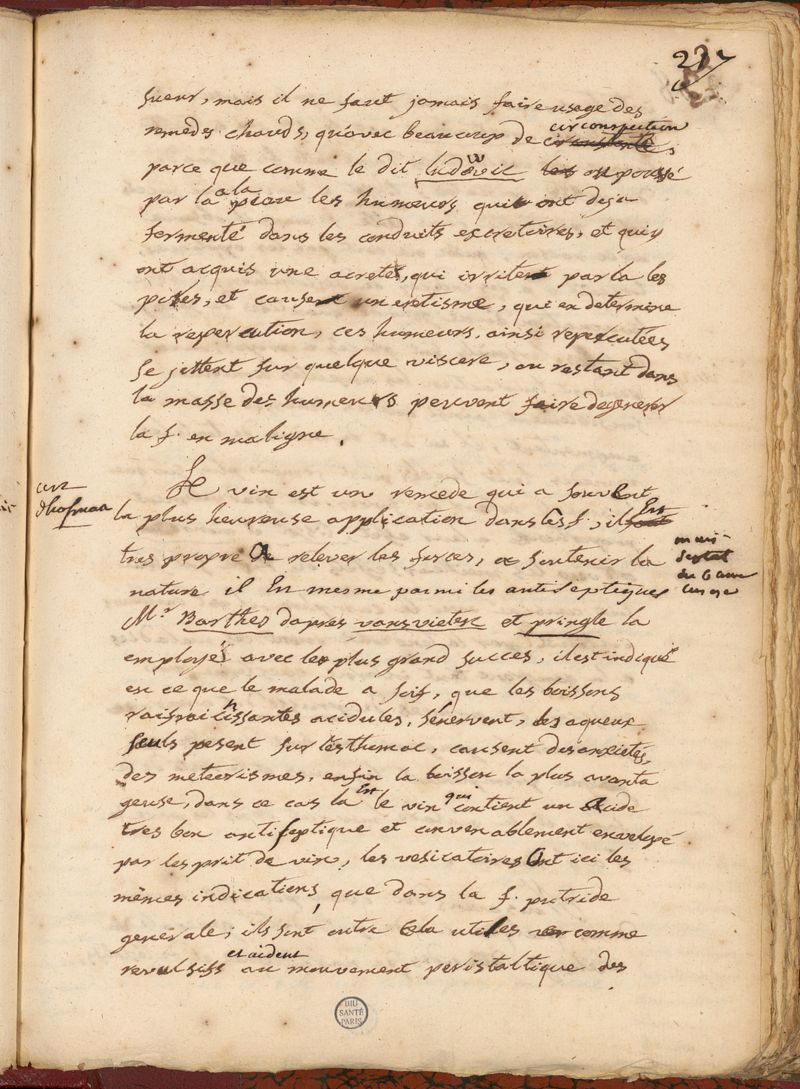 237
sueur, mais il ne faut jamais faire usage des
remedes chauds, qu'avec beaucoup de circonspection,
parce que comme le dit ludowic on poussé
par la a la peau les humeurs qui ont deja
fermenté dans les conduits excretoires, et qui y
ont acquis une acreté, qui irritent par la les
pores, et causent un eretisme, qui en determine
la repercution, ces humeurs, ainsi repercutées
se jettent sur quelque viscere, ou restant dans
la masse des humeurs peuvent faire degenerer
la f. en maligne.
Le vin est un remede qui a souvent
la plus heureuse application dans les f. ; il Est
tres propre a relever les forces, a soutenir la
nature il En mesme parmi les antiseptiques
Mr Barthes dapres vansvieten et pringle la
employé avec les plus grand succes, il est indiqué
en ce que le malade a soif, que les boissons
rafraichissantes acidules, l'énervent, les aqueux
seuls pesent sur l'esthomac, causent des anxietés,
des meteorismes, enfin la boisson la plus avanta
geuse, dans ce cas la Est le vin qui contient un acide
tres bon antiseptique et convenablement envelopé
par lesprit de vin, les vesicatoires Ont ici les
mêmes indications, que dans la f. putride
generale; ils sont outre cela utiles comme
revulsifs et aident au mouvement peristaltique des
BIU
SANTÉ
PARIS